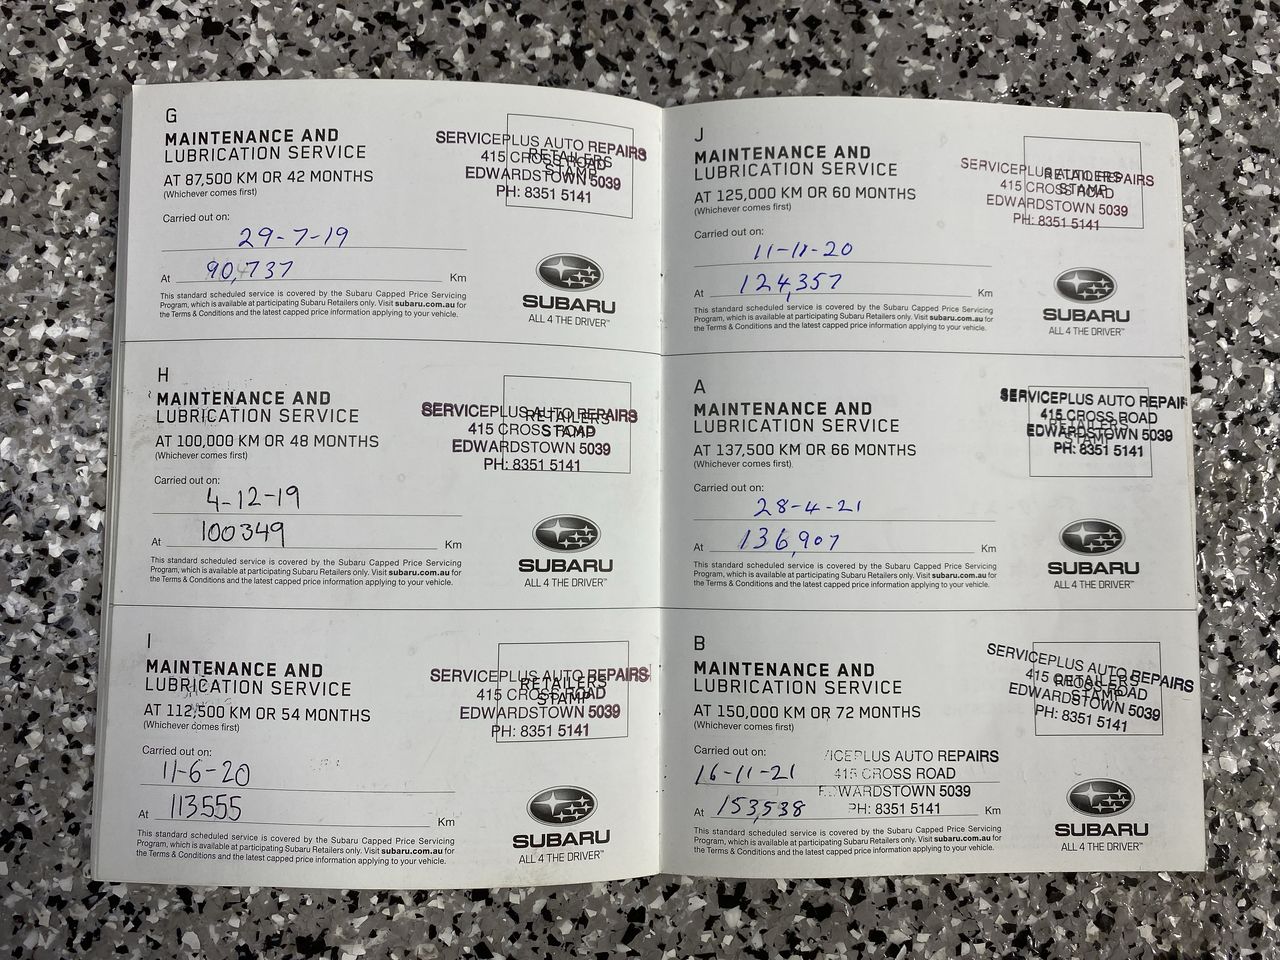 G
MAINTENANCE AND
LUBRICATION SERVICE
AT 87,500 KM OR 42 MONTHS
(Whichever comes first)
RETAILERS
STAMP
SERVICEPLUS AUTO REPAIRS
415 CROSS ROAD
EDWARDSTOWN 5039
PH: 8351 5141
Carried out on:
29-7-19
At 90,737 Km
This standard scheduled service is covered by the Subaru Capped Price Servicing
Program, which is available at participating Subaru Retailers only. Visit subaru.com.au for
the Terms & Conditions and the latest capped price information applying to your vehicle.
SUBARU
ALL 4 THE DRIVER™
H
MAINTENANCE AND
LUBRICATION SERVICE
AT 100,000 KM OR 48 MONTHS
(Whichever comes first)
RETAILERS
STAMP
SERVICEPLUS AUTO REPAIRS
415 CROSS ROAD
EDWARDSTOWN 5039
PH: 8351 5141
Carried out on:
4-12-19
At 100349 Km
This standard scheduled service is covered by the Subaru Capped Price Servicing
Program, which is available at participating Subaru Retailers only. Visit subaru.com.au for
the Terms & Conditions and the latest capped price information applying to your vehicle.
SUBARU
ALL 4 THE DRIVER™
I
MAINTENANCE AND
LUBRICATION SERVICE
AT 112,500 KM OR 54 MONTHS
(Whichever comes first)
RETAILERS
STAMP
SERVICEPLUS AUTO REPAIRS
415 CROSS ROAD
EDWARDSTOWN 5039
PH: 8351 5141
Carried out on:
11-6-20
At 113555 Km
This standard scheduled service is covered by the Subaru Capped Price Servicing
Program, which is available at participating Subaru Retailers only. Visit subaru.com.au for
the Terms & Conditions and the latest capped price information applying to your vehicle.
SUBARU
ALL 4 THE DRIVER™
J
MAINTENANCE AND
LUBRICATION SERVICE
AT 125,000 KM OR 60 MONTHS
(Whichever comes first)
RETAILERS
STAMP
SERVICEPLUS AUTO REPAIRS
415 CROSS ROAD
EDWARDSTOWN 5039
PH: 8351 5141
Carried out on:
11-11-20
At 124,357 Km
This standard scheduled service is covered by the Subaru Capped Price Servicing
Program, which is available at participating Subaru Retailers only. Visit subaru.com.au for
the Terms & Conditions and the latest capped price information applying to your vehicle.
SUBARU
ALL 4 THE DRIVER™
A
MAINTENANCE AND
LUBRICATION SERVICE
AT 137,500 KM OR 66 MONTHS
(Whichever comes first)
RETAILERS
STAMP
SERVICEPLUS AUTO REPAIRS
415 CROSS ROAD
EDWARDSTOWN 5039
PH: 8351 5141
Carried out on:
28-4-21
At 136,907 Km
This standard scheduled service is covered by the Subaru Capped Price Servicing
Program, which is available at participating Subaru Retailers only. Visit subaru.com.au for
the Terms & Conditions and the latest capped price information applying to your vehicle.
SUBARU
ALL 4 THE DRIVER™
B
MAINTENANCE AND
LUBRICATION SERVICE
AT 150,000 KM OR 72 MONTHS
(Whichever comes first)
RETAILERS
STAMP
SERVICEPLUS AUTO REPAIRS
415 CROSS ROAD
EDWARDSTOWN 5039
PH: 8351 5141
Carried out on:
16-11-21
At 153,538 Km
VICEPLUS AUTO REPAIRS
415 CROSS ROAD
EDWARDSTOWN 5039
PH: 8351 5141
This standard scheduled service is covered by the Subaru Capped Price Servicing
Program, which is available at participating Subaru Retailers only. Visit subaru.com.au for
the Terms & Conditions and the latest capped price information applying to your vehicle.
SUBARU
ALL 4 THE DRIVER™